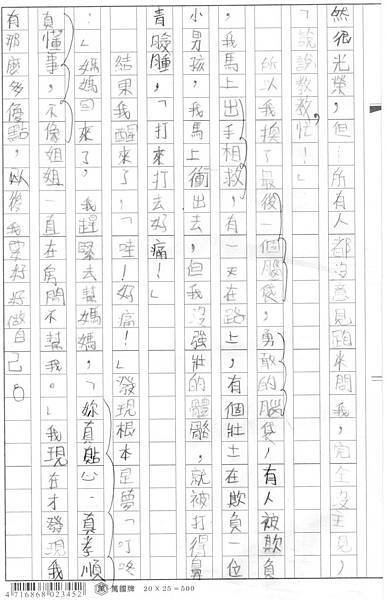 然很光榮，但…所有人都沒意見跑來問我，完全沒主見，
「說說教教忙！」
所以我換了最後一個腦袋，勇敢的腦袋，有人被欺負
，我馬上出手相救，有一天在路上，有個壯士在欺負一位
小男孩，我馬上衝出去，但我沒強壯的體骼，就被打得鼻
青臉腫，「打來打去好痛！」
結果我醒來了，「哇！好痛！」發現根本是夢「叮咚
：」媽媽回來了，我趕緊去幫媽媽，「妳真貼心、真孝順
真懂事，不像姐姐一直在房間不幫我。」我現在才發現我
有那麼多優點，以後我要好好做自己。
4716868023452
萬國牌 20×25=500